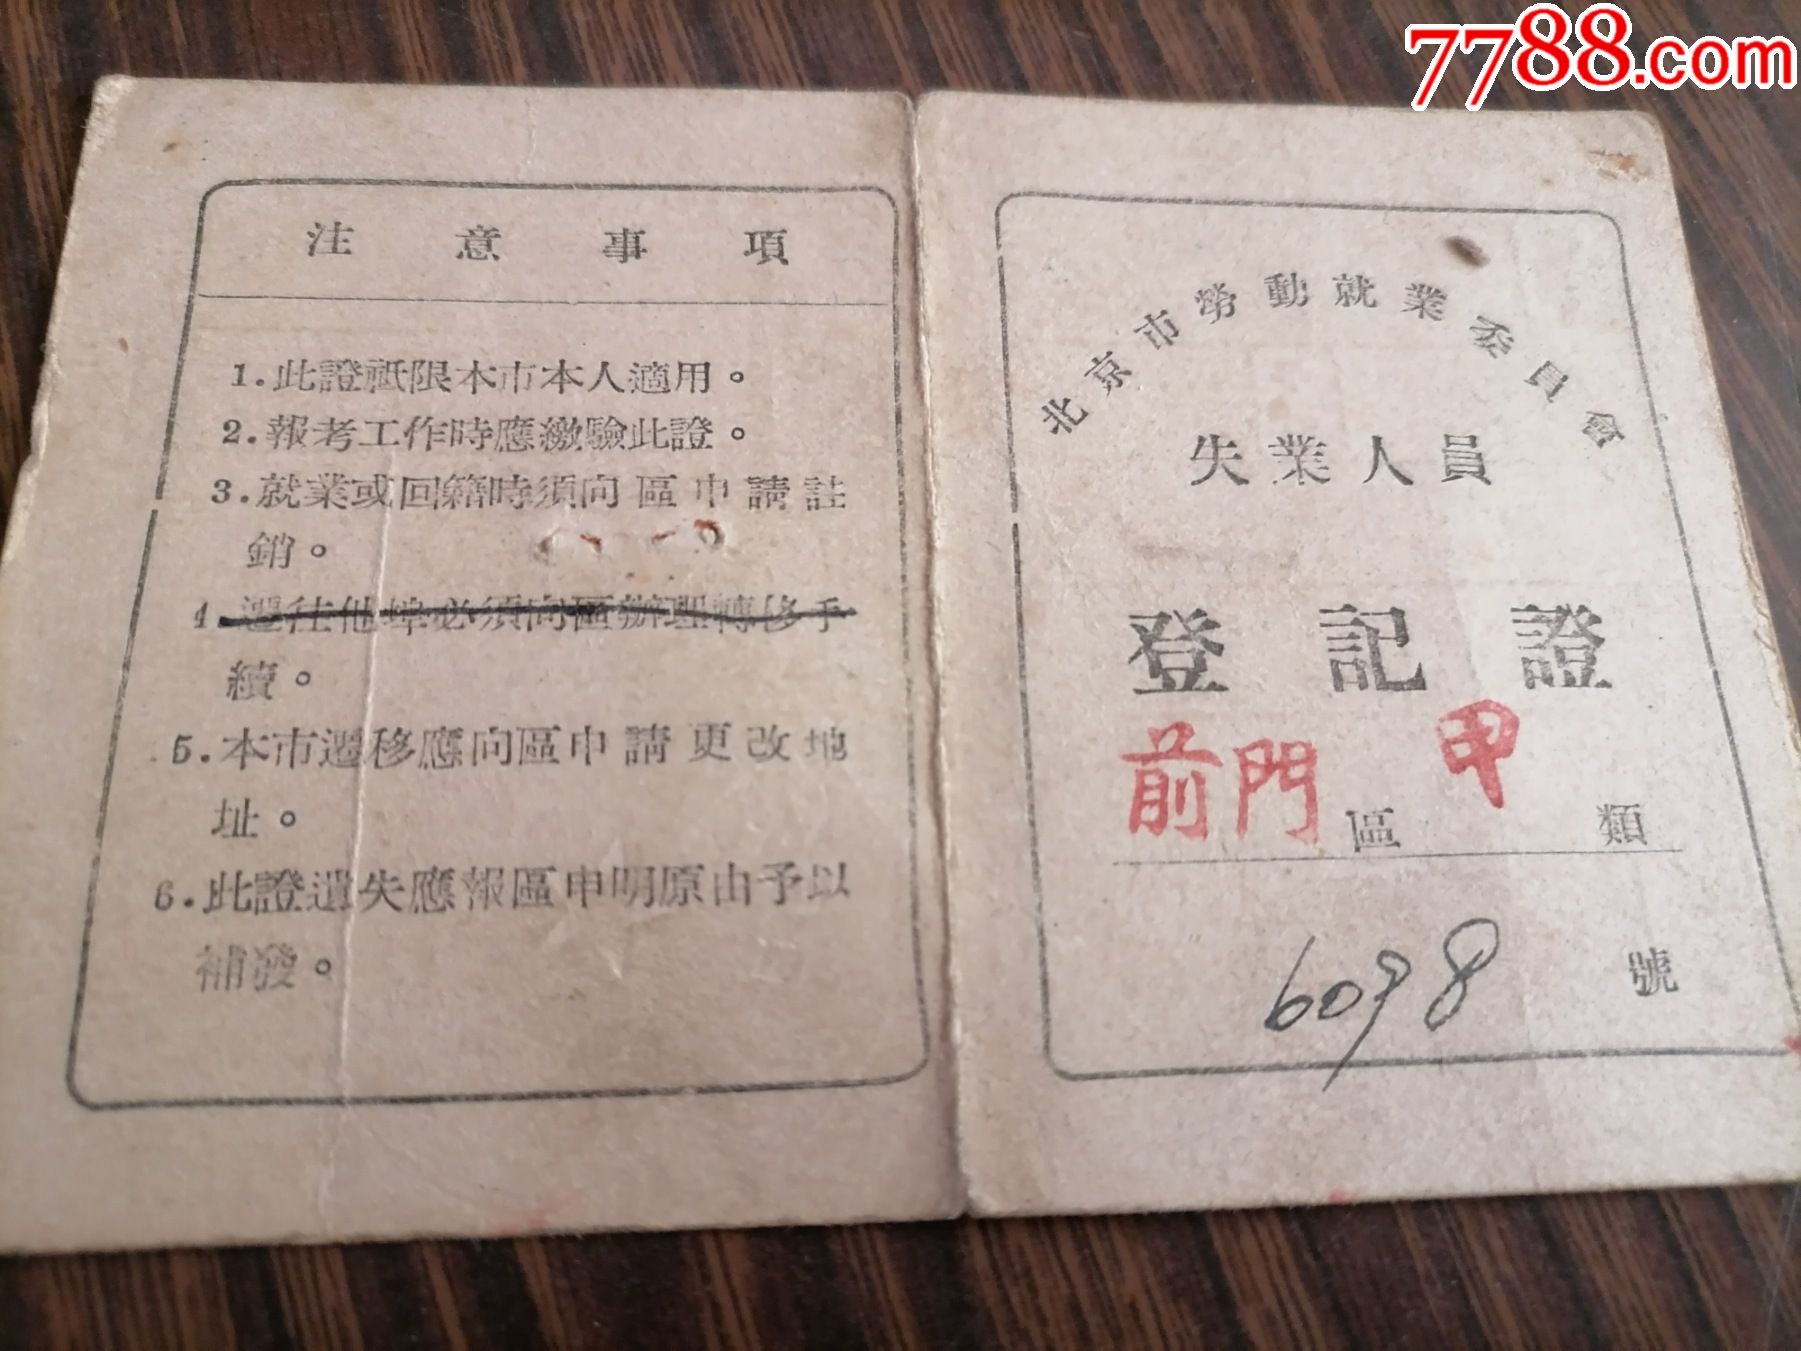 7788.com
注意事項
1.此證祗限本市本人適用。
2.報考工作時應繳驗此證。
3.就業或回籍時須向區申請註
銷。
4 遷往他埠必須向區辦理轉移手
續。
5.本市遷移應向區申請更改地
址。
6.此證遺失應報區申明原由予以
補發。
北京市勞動就業委員會
失業人員
登記證
前門區 甲類
6098號